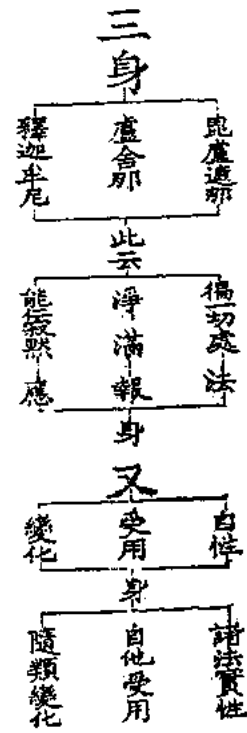 三身
毘盧遮那
盧舍那
釋迦牟尼
此云
徧一切處 法
淨滿 報
能仁寂默 應
身
又
自性
受用
變化
身
諸法實性
自他受用
隨類變化